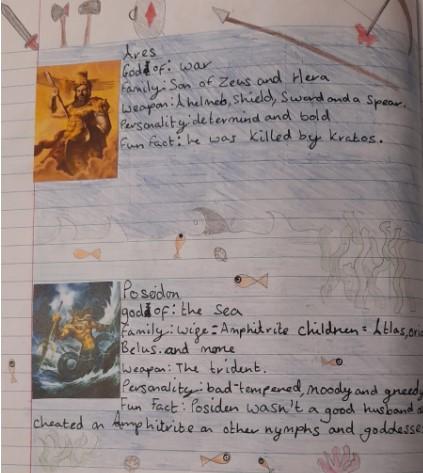 Ares
God of: war
Family: Son of Zeus and Hera
Weapon: A helmet, Shield, Sword and a Spear.
Personality: determind and bold
Fun Fact: he was killed by Kratos.
Posedon
god of: the sea
Family: wife = Amphitrite children = Atlas,
Belus. and more
Weapon: The trident.
Personality: bad-tempered, moody and greedy
Fun Fact: Posiden wasn't a good husband
cheated on Amphitrite on other nymphs and goddesse